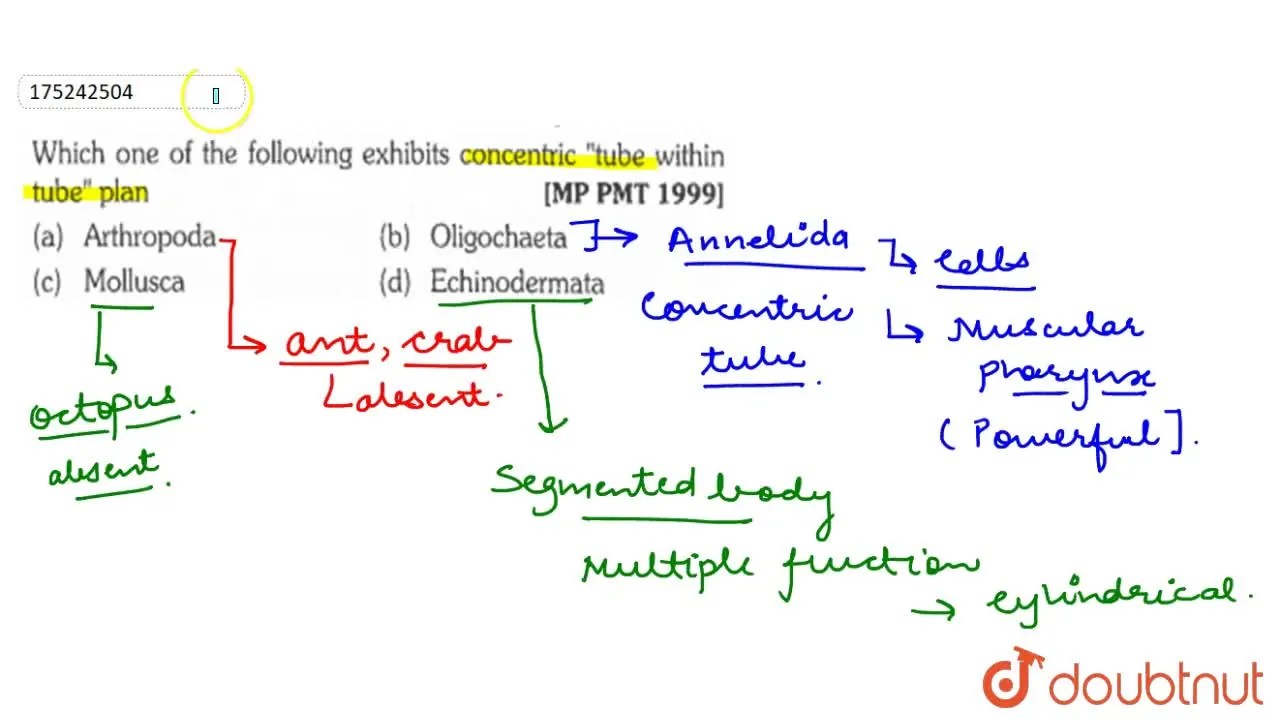 175242504
Which one of the following exhibits concentric "tube within
tube" plan [MP PMT 1999]
(a) Arthropoda (b) Oligochaeta
(c) Mollusca (d) Echinodermata
Annelida
Cells
Concentric
tube.
Muscular
Pharynx
(Powerful].
ant, crab
absent.
octopus.
absent.
Segmented body
Multiple function
cylindrical.
doubtnut